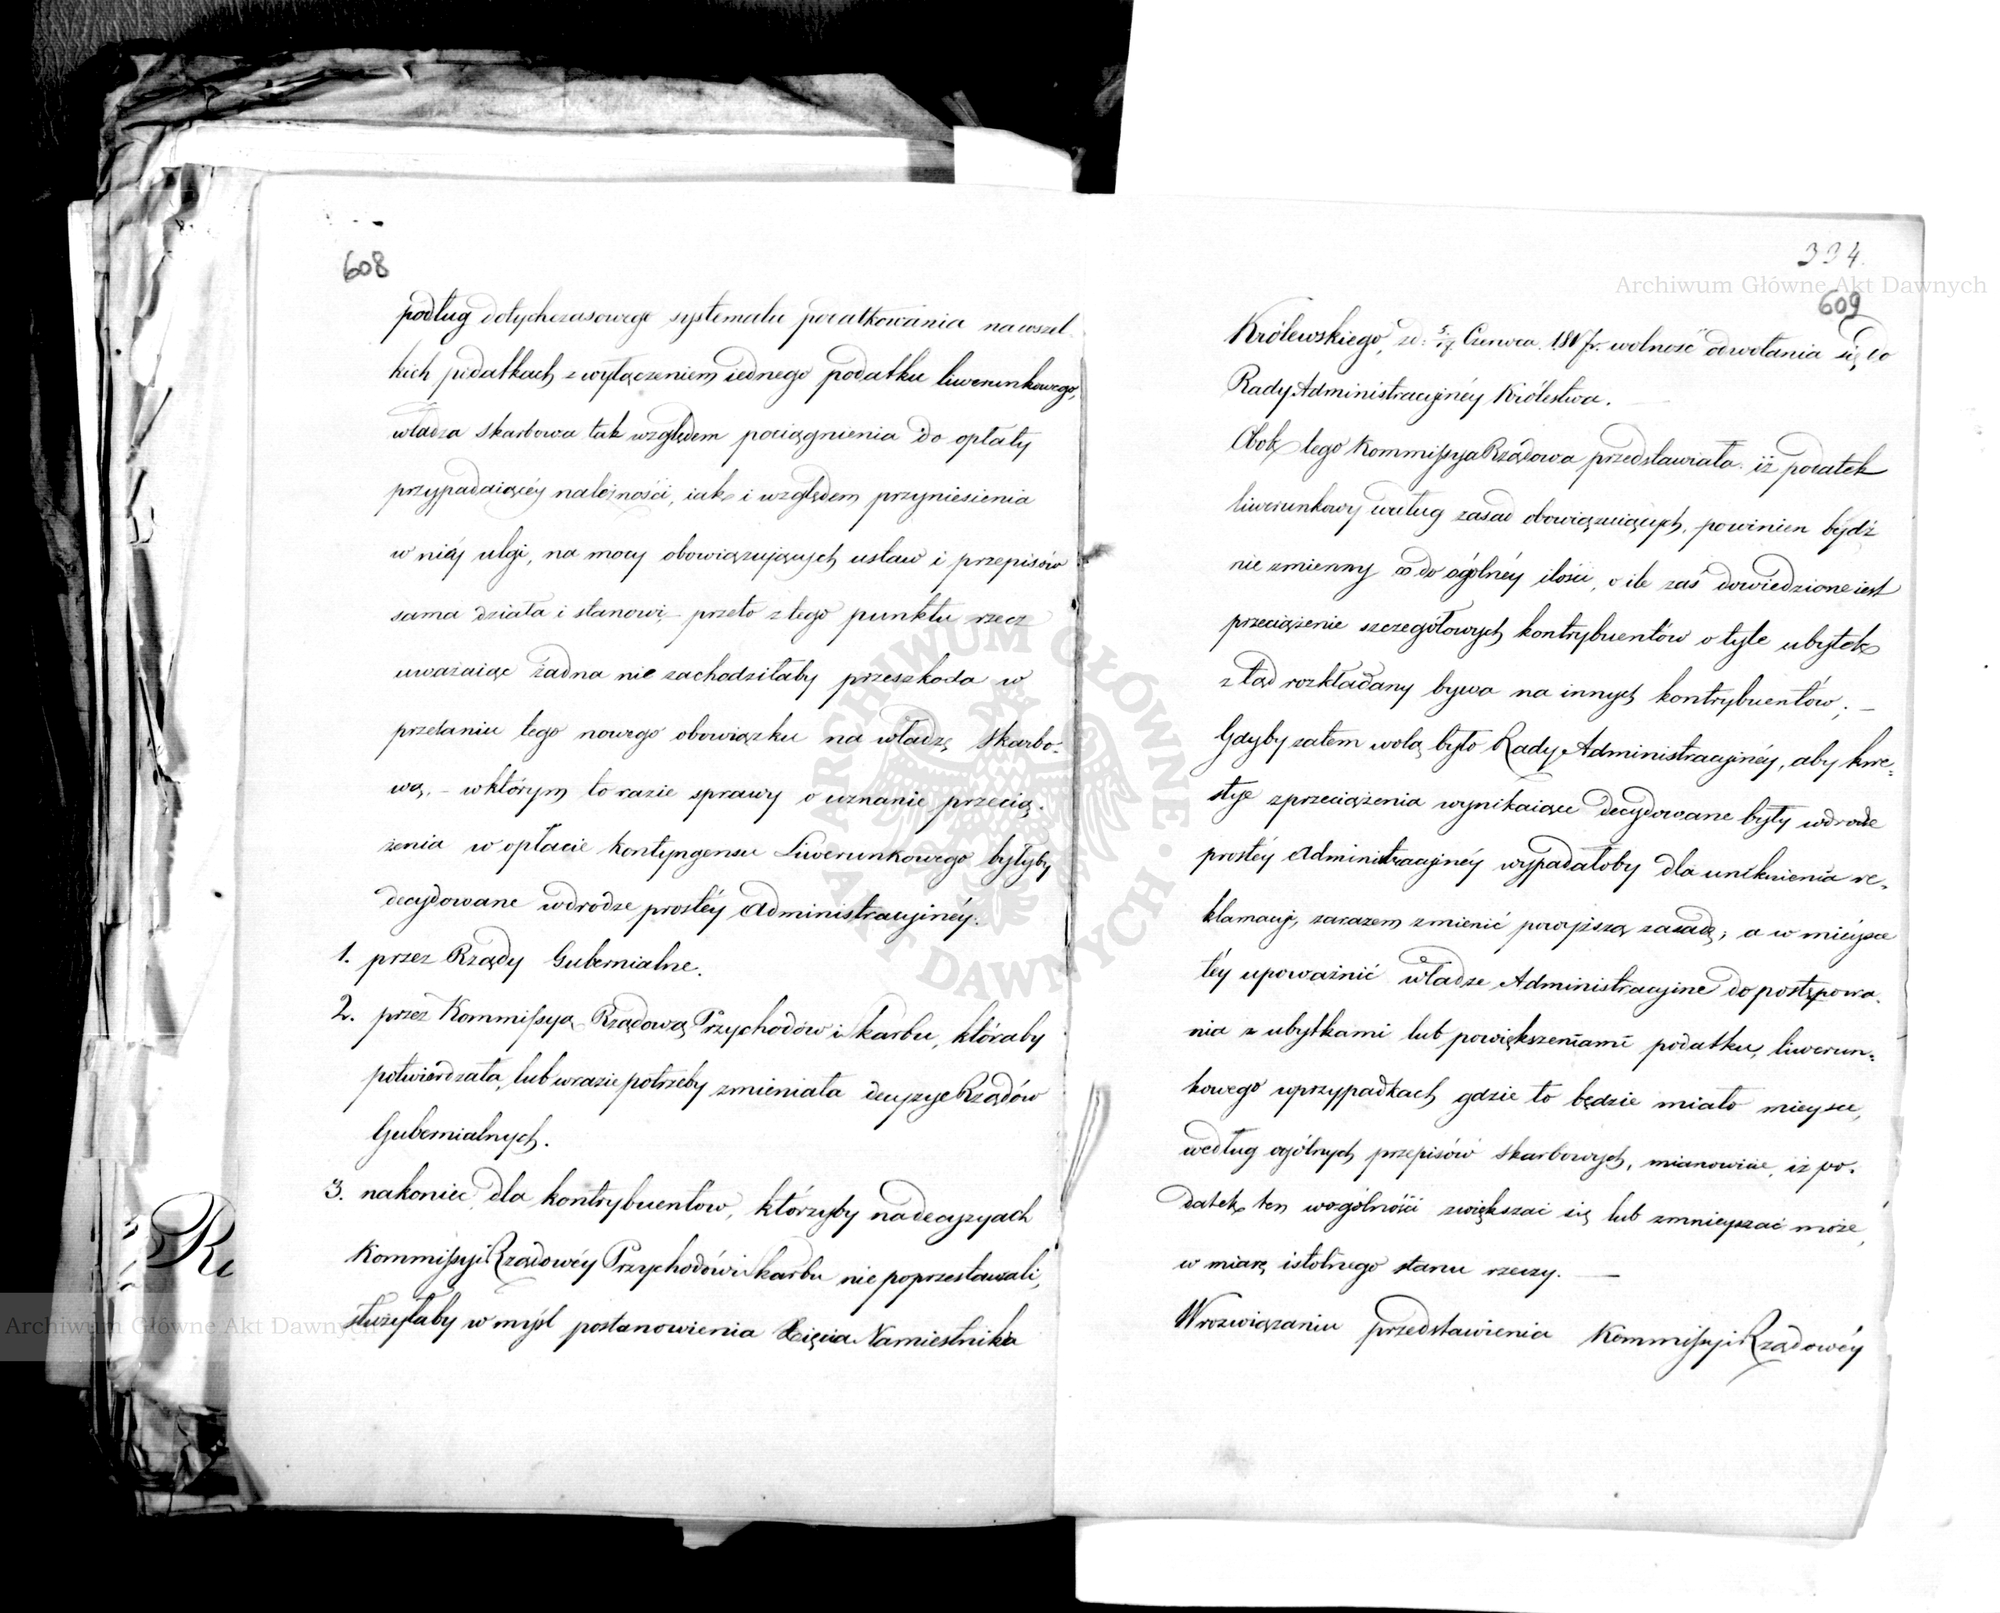 608
podług dotychczasowego systematu podatkowania na wszel-
kich podatkach z wyłączeniem iednego podatku liwerunkowego,
władza skarbowa tak względem pociągnienia do opłaty
przypadaiącéy należności, iak i względem przyniesienia
w niéy ulgi, na mocy obowiązuiących ustaw i przepisów
sama działa i stanowi – przeto z tego punktu rzecz
uważaiąc żadna nie zachodziłaby przeszkoda w
przelaniu tego nowego obowiązku na władzę skarbo-
wą, – w którym to razie sprawy o uznanie przecią-
żenia w opłacie kontyngensu Liwerunkowego byłyby
decydowane w drodze prostéy Administracyjnéy.
1. przez Rządy Gubernialne.
2. przez Kommissyą Rządową Przychodów i Skarbu, któraby
potwierdzała, lub w razie potrzeby zmieniała decyzye Rządów
Gubernialnych.
3. nakoniec dla kontrybuentów, którzyby na decyzyach
Kommissyi Rządowéy Przychodów i Skarbu nie poprzestawali,
służyłaby w myśl postanowienia Xięcia Namiestnika
334.
609
Królewskiego, Czerwca wolność odwołania się do
Rady Administracyjnéy Królestwa.
Obok tego Kommissya Rządowa przedstawiała iż podatek
liwerunkowy według zasad obowiązuiących, powinien bydź
niezmienny co do ogólnéy ilości, o ile zaś dowiedzione iest
przeciążenie szczegółowych kontrybuentów o tyle ubytek
ztąd rozkładany bywa na innych kontrybuentów; –
Gdyby zatem wolą było Rady Administracyjnéy, aby kwe-
stye z przeciążenia wynikaiące decydowane były w drodze
prostéy Administracyjnéy wypadałoby dla uniknienia re-
klamacyi, zarazem zmienić powyższą zasadę; a w mieysce
téy upoważnić władze Administracyjne do postępowa-
nia z ubytkami lub powiększeniami podatku, liwerun-
kowego w przypadkach gdzie to będzie miało mieysce,
według ogólnych przepisów skarbowych, mianowicie, iż po-
datek ten w ogólności zwiększać się lub zmnieyszać może,
w miarę istotnego stanu rzeczy. —
W rozwiązaniu przedstawienia Kommissyi Rządowéy
Archiwum Główne Akt Dawnych
Archiwum Główne Akt Dawnych
ARCHIWUM GŁÓWNE · AKT DAWNYCH ·